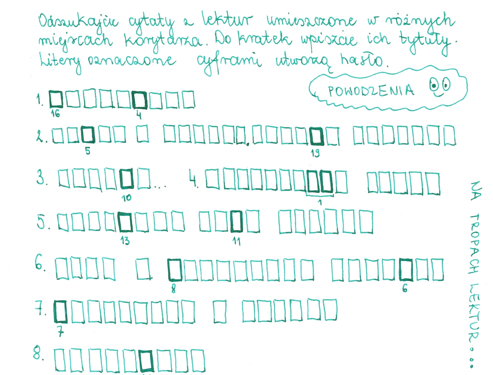 Odszukajcie cytaty z lektur umieszczone w różnych
miejscach korytarza. Do kratek wpiszcie ich tytuły.
Litery oznaczone cyframi utworzą hasło.
POWODZENIA
1.
16 4
2.
5 19
3. ... 4.
10 1
5.
13 11
6.
8 6
7.
7
8.
NA TROPACH LEKTUR...